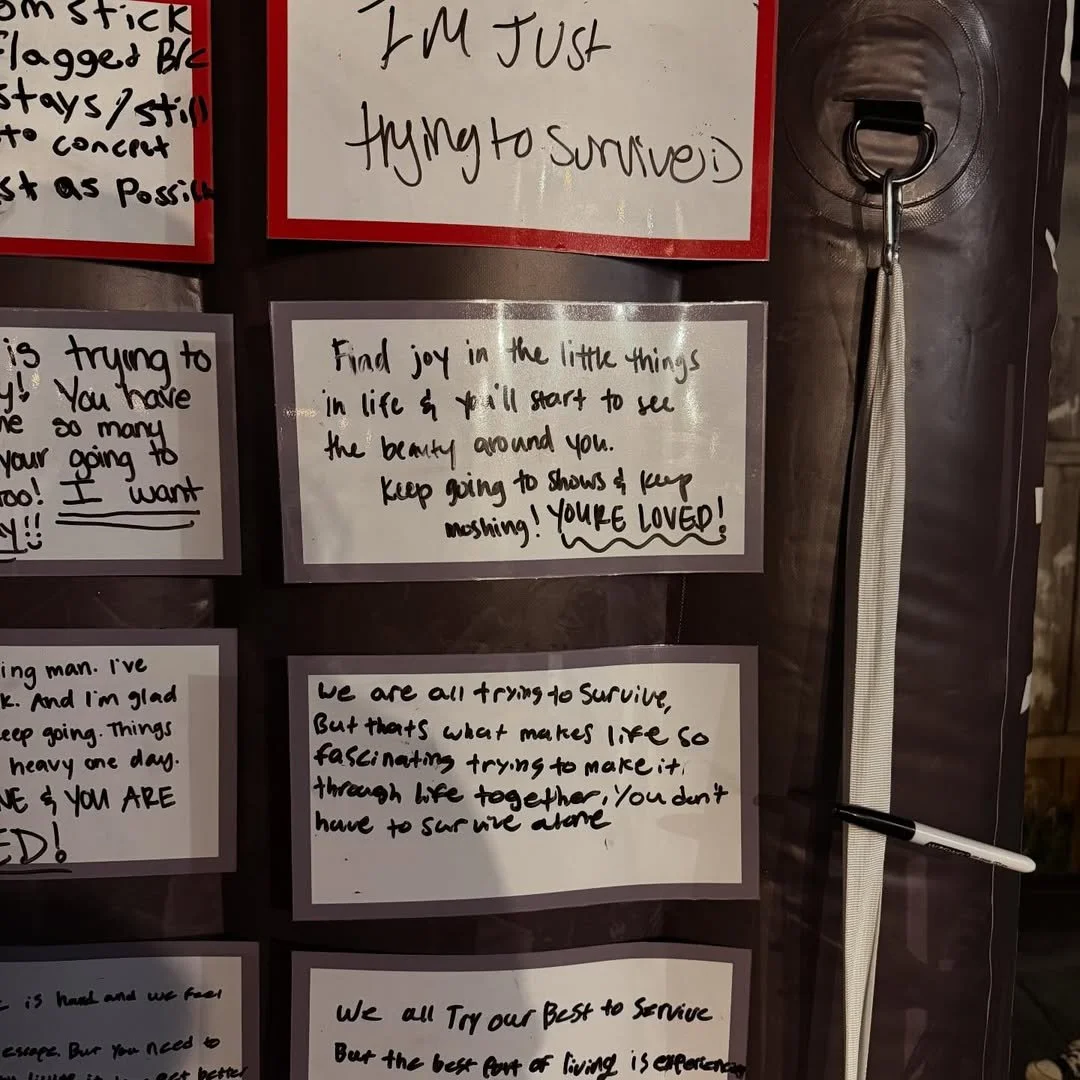 om stick
flagged B/c
stays/still
to concept
st as possibl
I'M JUST
trying to survive:)
is trying to
y! You have
me so many
your going to
too! I want
Y!!
Find joy in the little things
in life & you'll start to see
the beauty around you.
Keep going to shows & keep
moshing! YOURE LOVED!
ing man. I've
k. And I'm glad
keep going. Things
heavy one day.
NE & YOU ARE
ED!
We are all trying to survive,
But thats what makes life so
fascinating trying to make it
through life together, You don't
have to survive alone
is hard and we feel
escape. But you need to
get better
We all Try our Best to Survive
But the best part of living is experienc